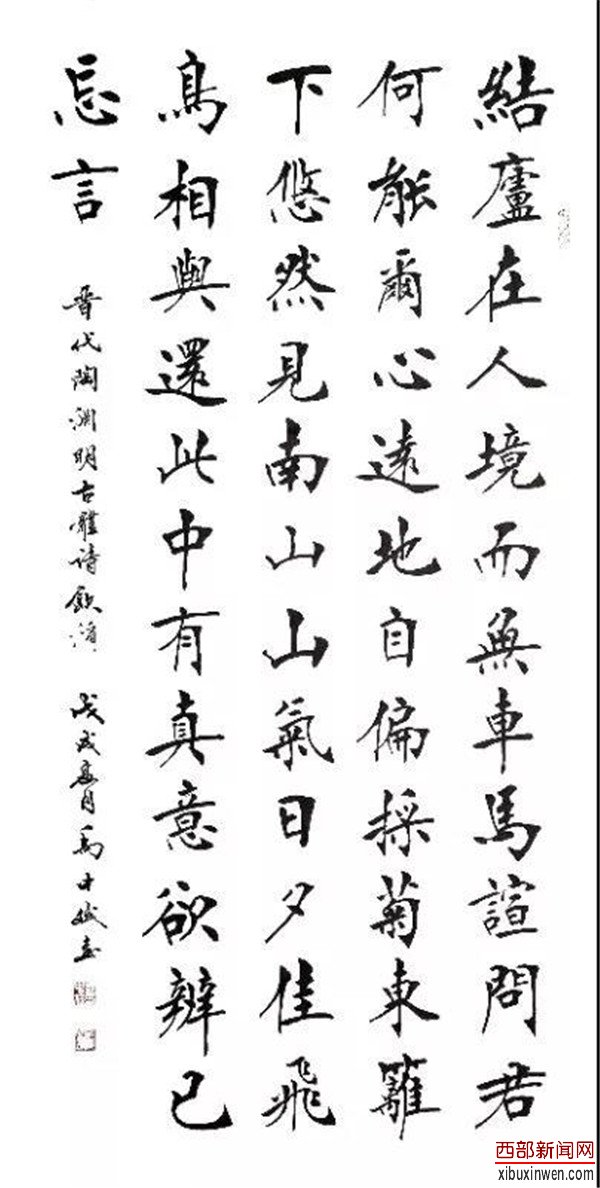 結廬在人境而無車馬諠問君
何能爾心遠地自偏採菊東籬
下悠然見南山山氣日夕佳飛
鳥相與還此中有真意欲辨已
忘言
晋代陶渊明古體诗飲酒 戊戌
西部新闻网
xibuxinwen.com